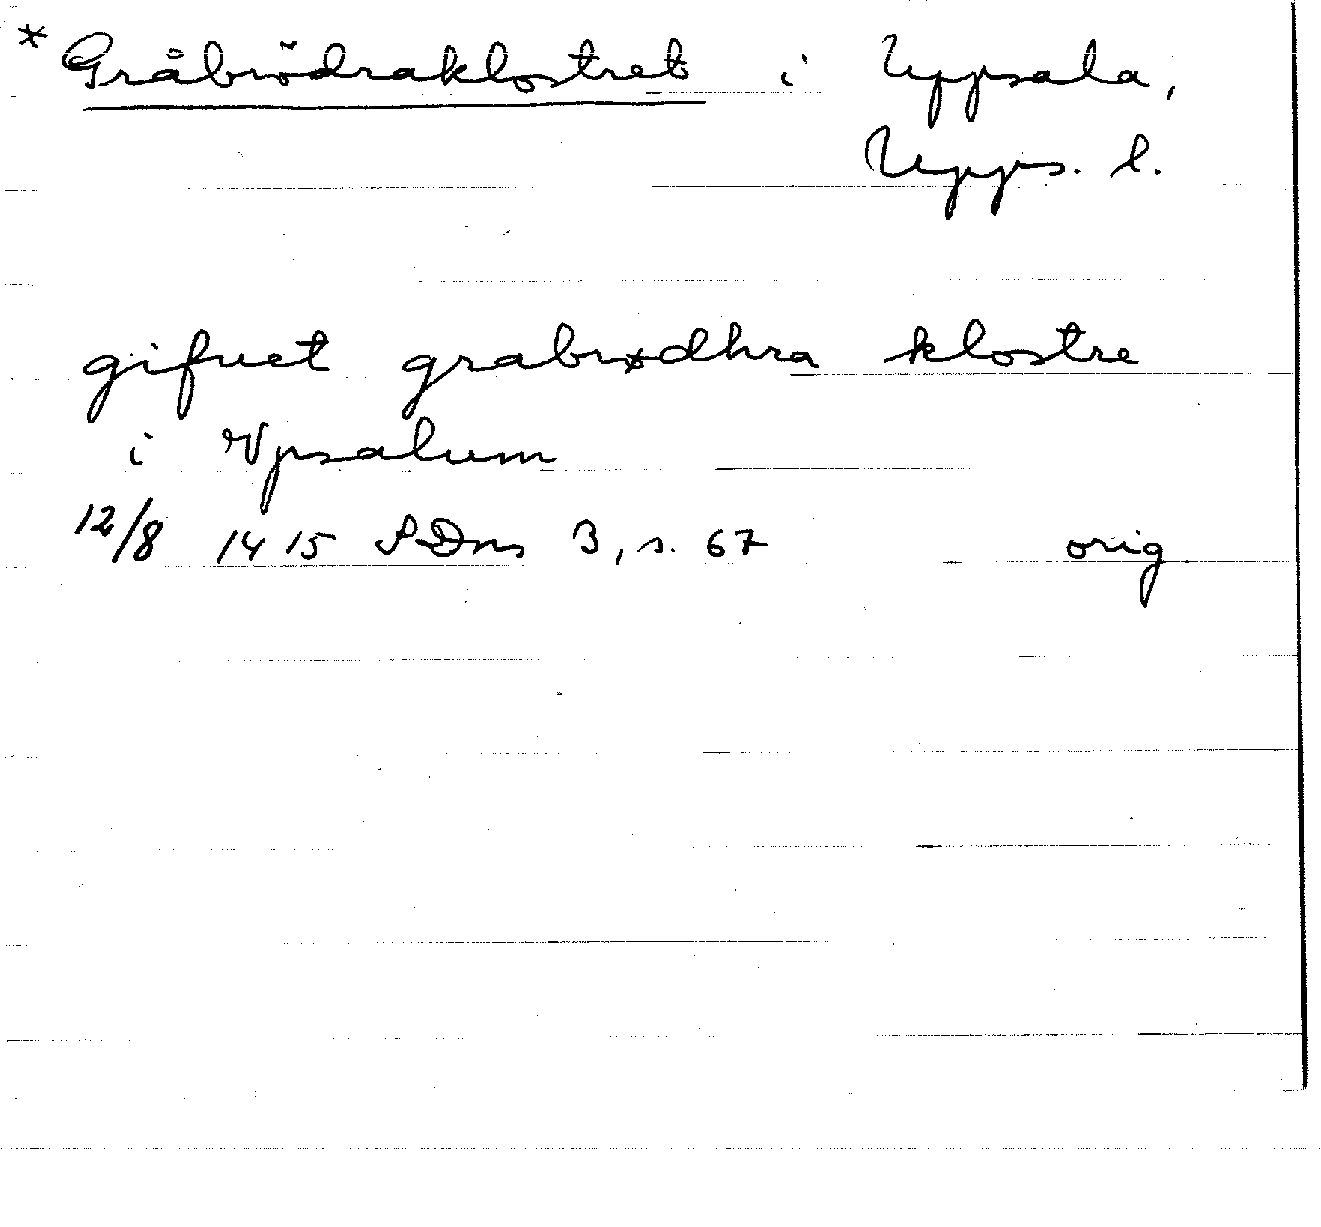 * Gråbrödraklostret i Uppsala,
Upps. l.
gifuet grabrødhra klostre
i Vpsalum
12/8 1415 SDns 3, s. 67 orig